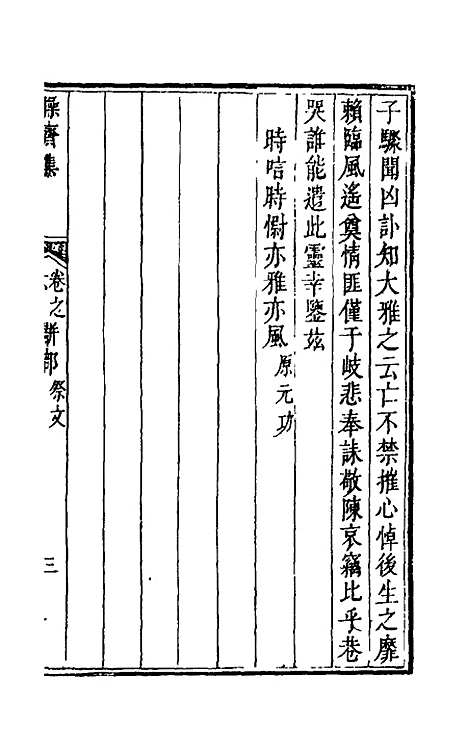 子驟聞凶訃知大雅之云亡不禁摧心悼後生之靡
賴臨風遙奠情匪僅于岐悲奉誄敬陳哀竊比乎巷
哭誰能遣此靈幸鑒茲
時唁時慰亦雅亦風原元功
操齋集
卷之 駢部 祭文
三